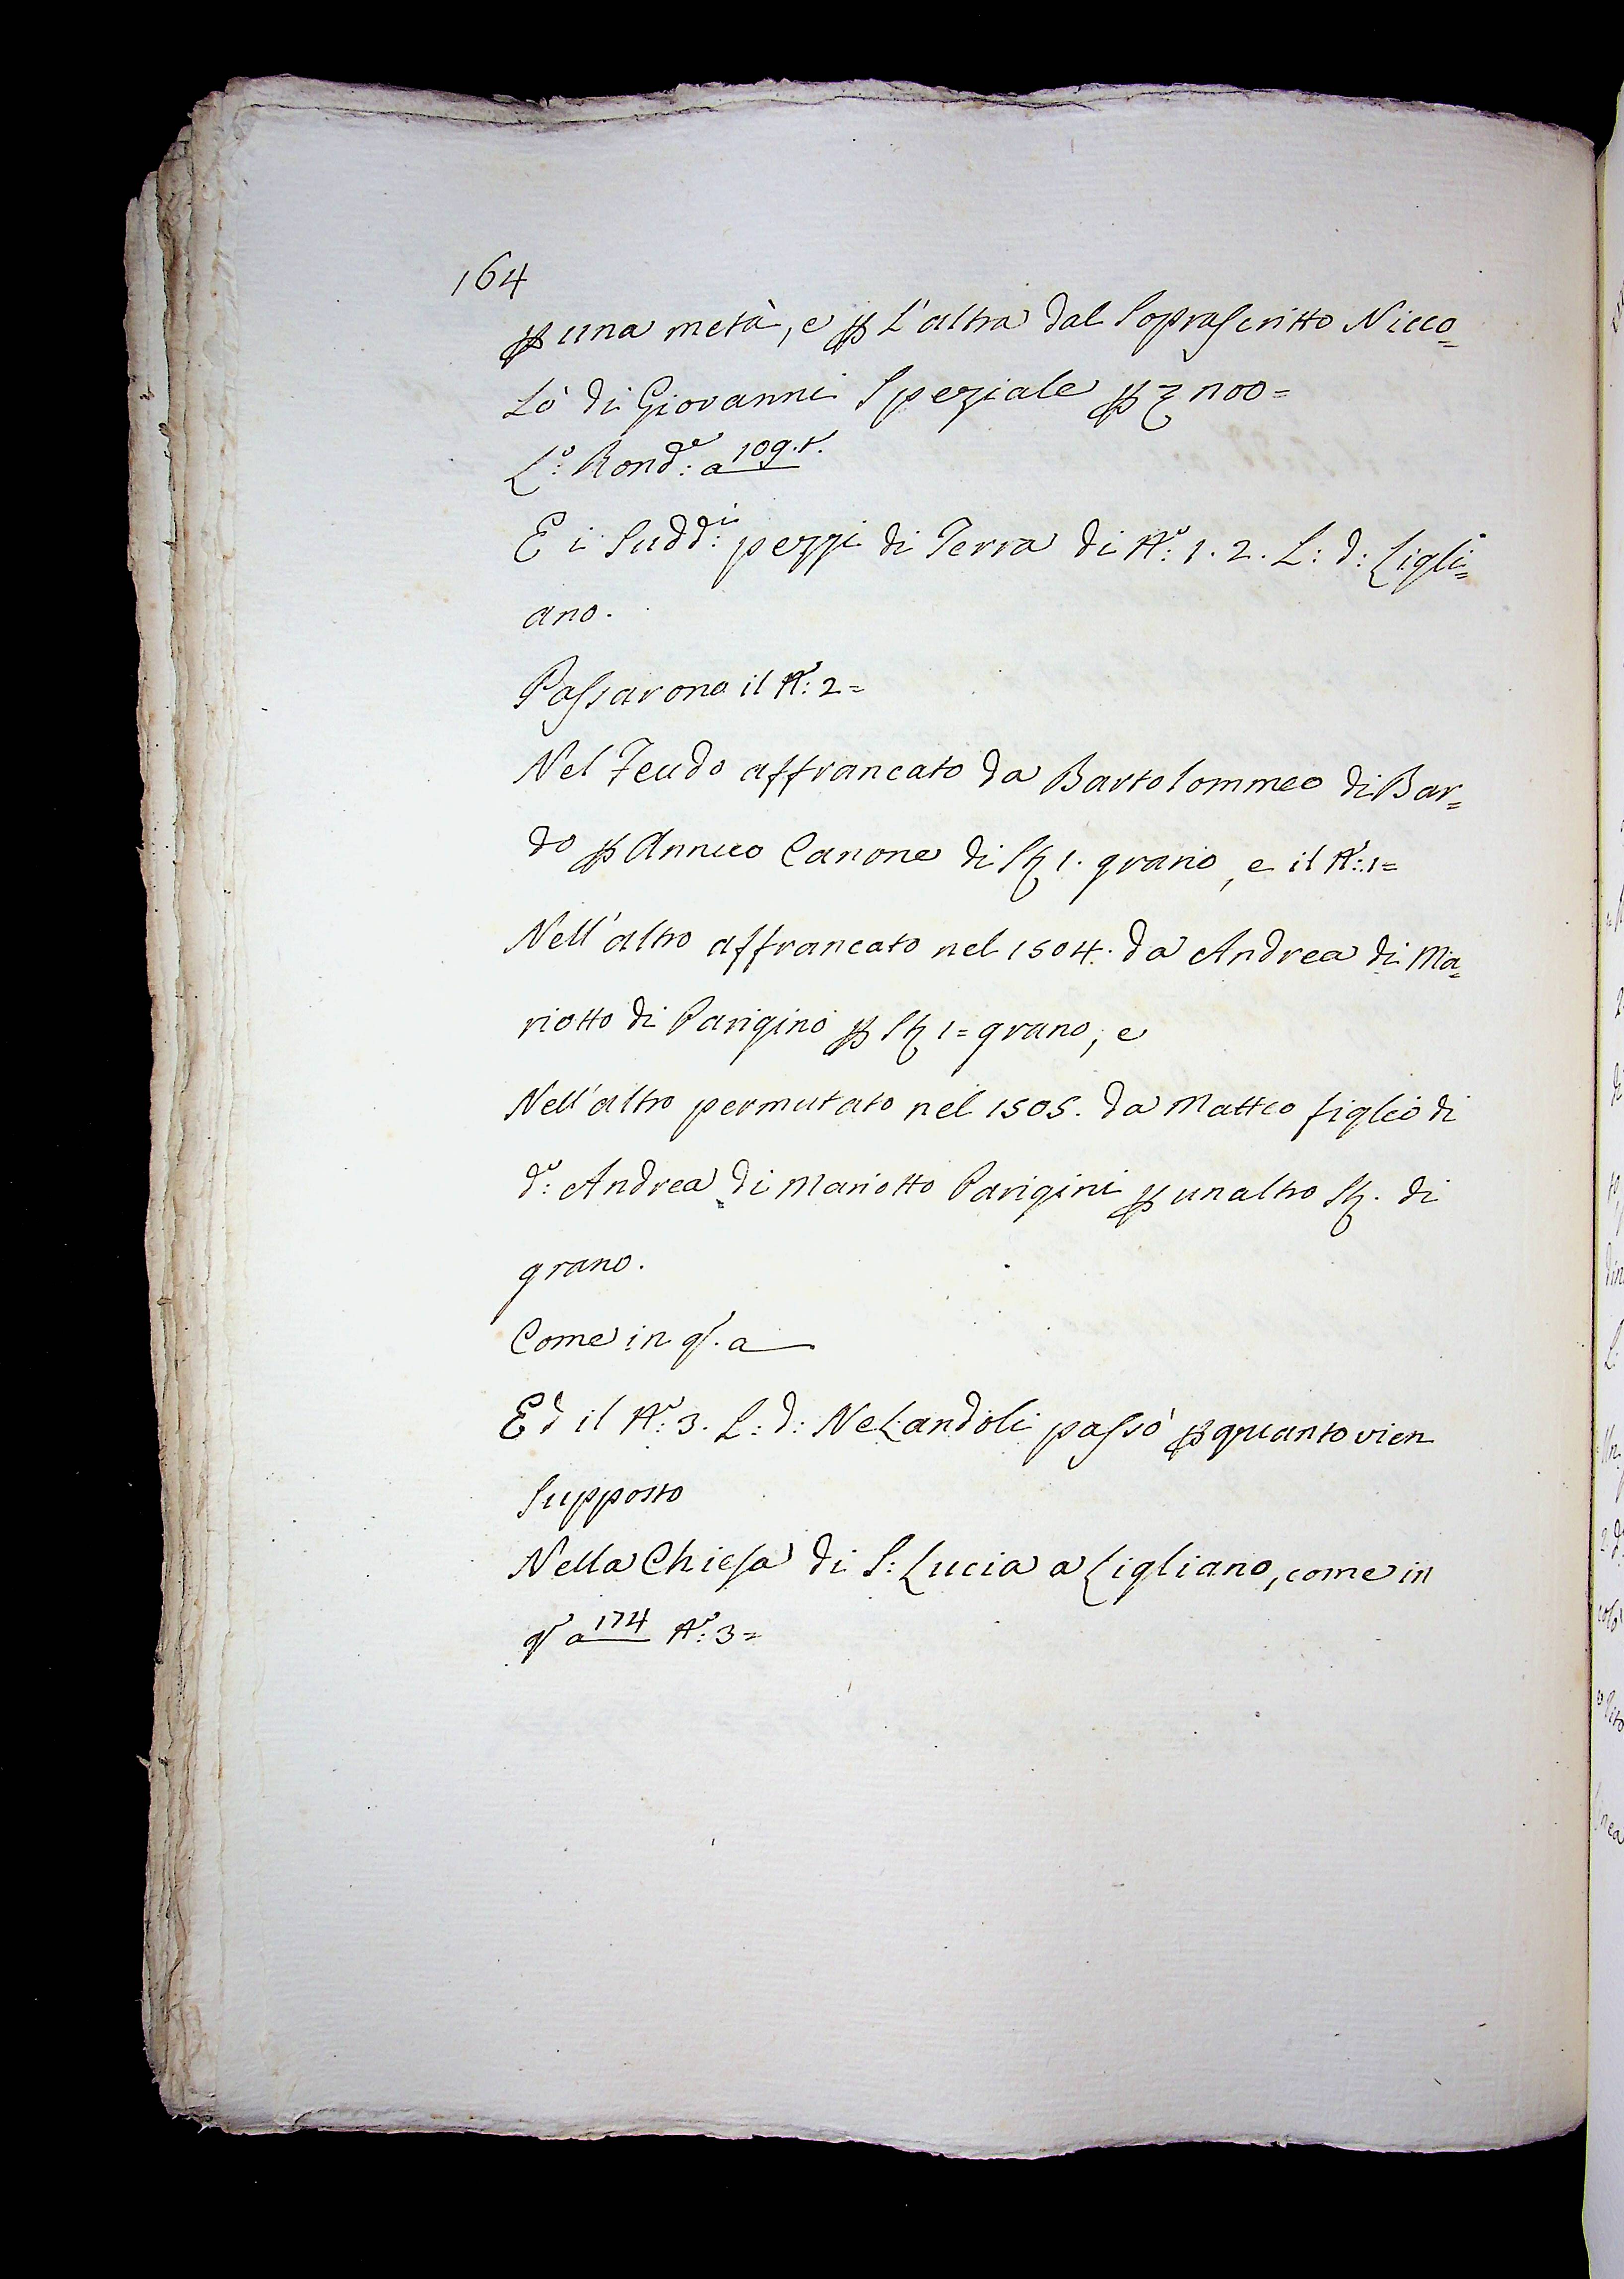 164
p una metà, e p L'altra dal Soprascritto Nicco=
Lò di Giovanni Speziale p
L.º Rond.º: a 109.t.
E i Sudd.i: pezzi di Terra di N.º: 1. 2. L: d: Ligli=
ano.
Passarono il N.º: 2=
Nel Feudo affrancato da Bartolommeo di Bar=
do p Annuo Canone di S 1. grano, e il N.º: 1=
Nell'altro affrancato nel 1504. da Andrea di Ma=
riotto di Parigino p S 1= grano, e
Nell'altro permutato nel 1505. da Matteo figlio di
d.º: Andrea di Mariotto Parigini p unaltro S. di
grano.
Come in q. a
Ed il N.º: 3. L: d: NeLandoli passò p quanto vien
Supposto
Nella Chiesa di S: Lucia a Ligliano, come in
q a 174 N.º: 3=